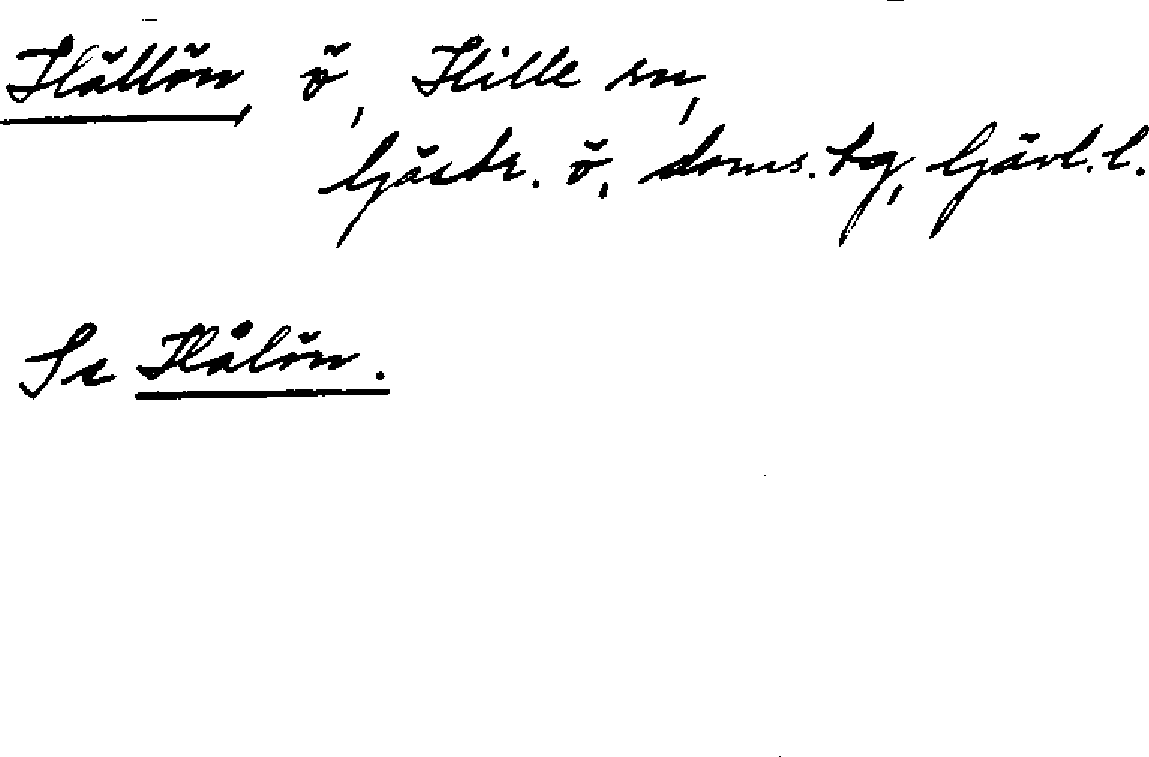 Hällön, ö, Hille sn,
Gästr. ö. doms. tg, Gävl.l.
Se Hålön.